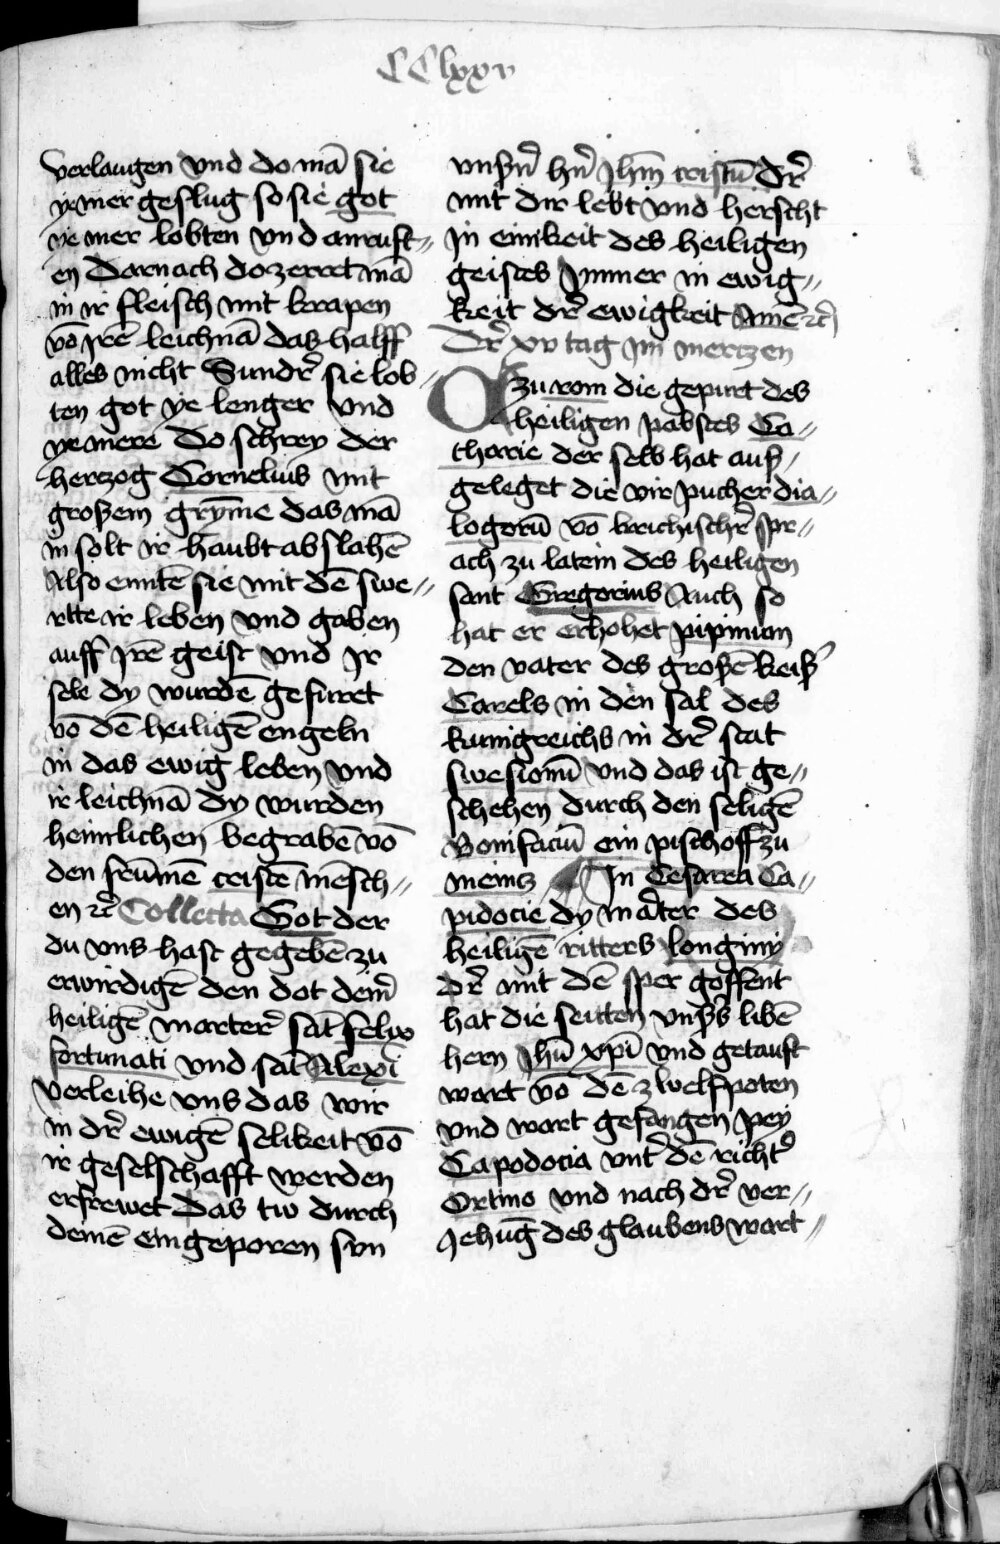 CClxxv
verlaugen vnd do mā sie
ye mer geslug so sie got
ye mer lobten vnd anruft//
en Darnach do zerret mā
in ir fleisch mit krapen
vō jrē leichnā das halff
alles nicht Sundr̄ sie lob//
ten got ye lenger vnd
ye mere do schrey der
herczog Cornelius mit
großem grȳme das mā
in solt ir haubt abslahē
Also enntē sie mit dē swe//
rtte ir leben vnd gaben
auff jrē geist vnd jr
sele dy wurdē gefuret
vō dē heiligē engeln
in das ewig leben vnd
ir leichnā dy wurden
heimlichen begrabē vō
den frūmē cristē mēsch//
en ꝛc̄ Collecta Got der
du vns hast gegebē zu
erwirdigē den dot dein̄
heiligē marterē sāt felix
fortunati vnd sāt Alexi
verleihe vns das wir
in dr̄ ewigē selikeit vō
ir geselschafft werden
erfrewet Das tw durch
deinē eingeporen svn
vnßn̄ hn̄ Jhm̄ cristū dr̄
mit dir lebt vnd herscht
Jn einikeit des heiligen
geistes Jmmer in ewig//
keit dr̄ ewigkeit Amē ꝛc̄
Dr̄ xv tag jm mertzen
zu rom die gepurt des
heiligen pabstes Za//
charie der selb hat auß/
geleget die vir pucher dia//
logorū vō krichischer̄ spr//
ach zu latein des heiligen
sant Gregorius Auch so
hat er erhohet pipinum
den vater des großē keiß
Carels in den sal des
kunigreichs in dr̄ stat
swesionū vnd das ist ge//
schehen durch den seligē
Bonifaciū ein pischoff zu
meincz Jn Cesarea Ca//
pidocie dy mater des
heiligē ritters longini
dr̄ mit dē sper goffent
hat die seitten vnßs libē
hern Jhū xpī vnd getauft
wart vō dē zwelfpoten
vnd wart gefangen pey
Capodocia vnt̄ dē richt̄
Ortino vnd nach dr̄ ver//
gehūg des glaubens wart//